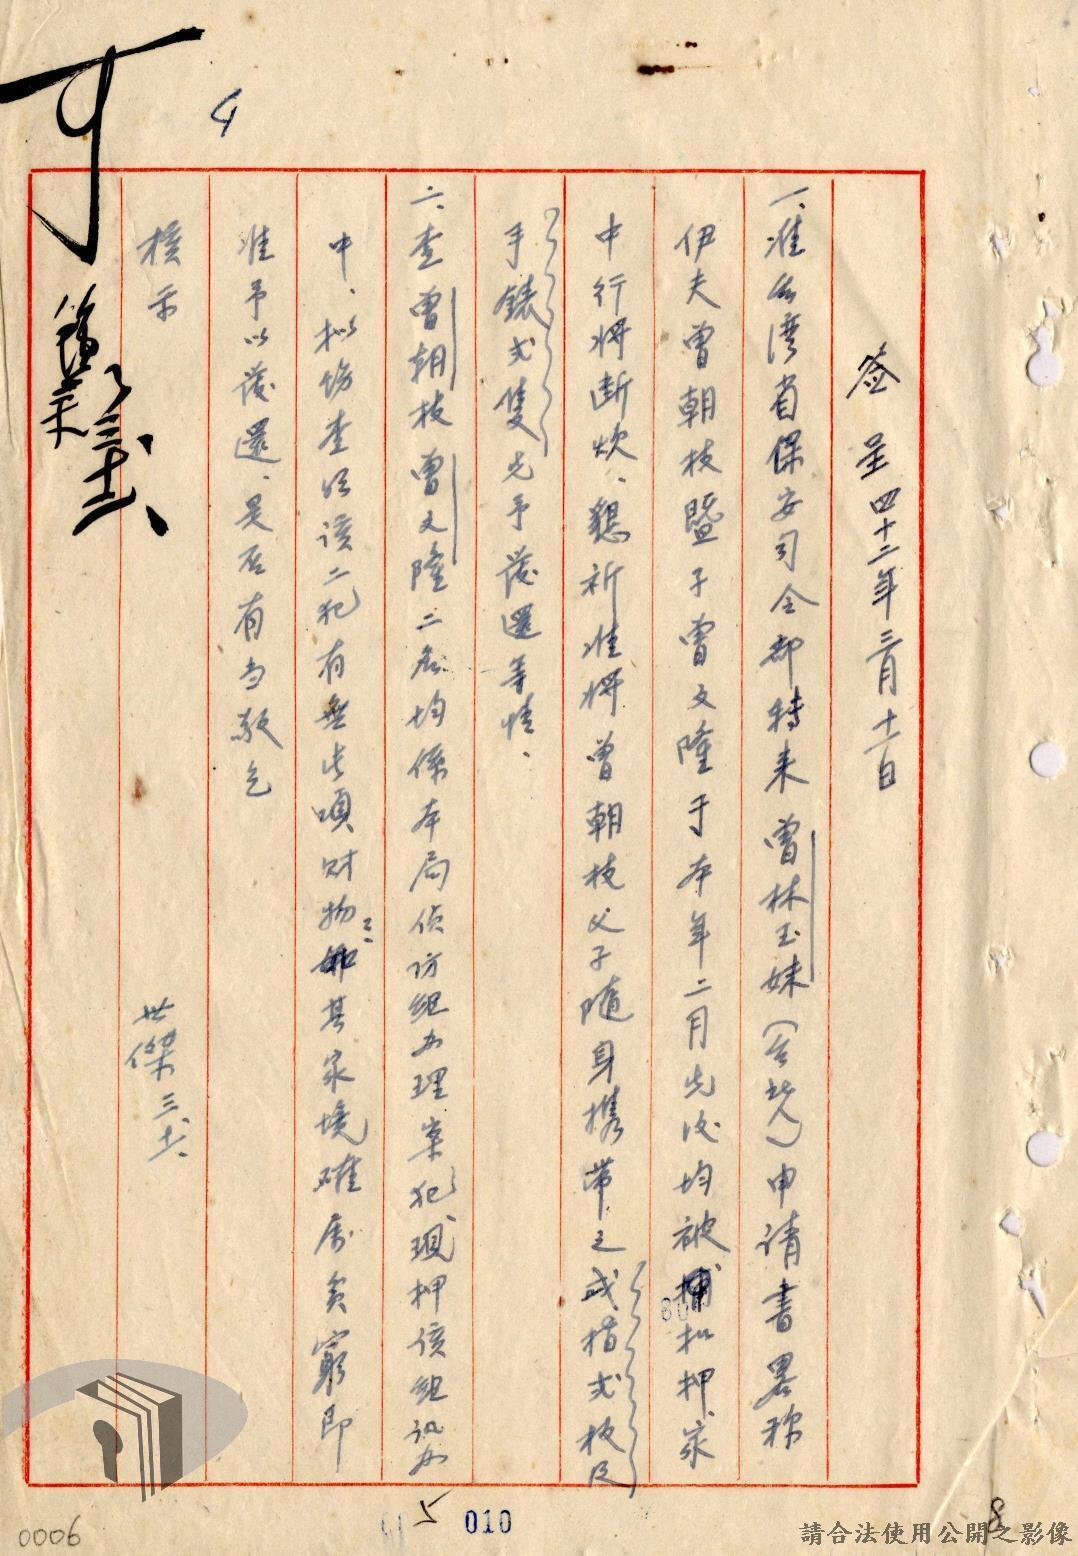 4
簽呈 四十二年三月十二日
一、准台湾省保安司令部轉来曾林玉妹(台北)申请書畧称
伊夫曾朝枝暨子曾文隆于本年二月先後均被捕扣押、家
中行将断炊、懇祈准将曾朝枝父子随身携带之戒指弍枚及
手錶弍隻先予發還等情、
二、查曾朝枝曾文隆二名均係本局偵防組办理案犯、現押该组讯办
中、拟饬查明该二犯有無此項财物、如其家境確属貧窮即
准予以發還、是否有当敬乞
核示
世傑 三、十二、
可
三、十二、
5
010
8
0006
請合法使用公開之影像